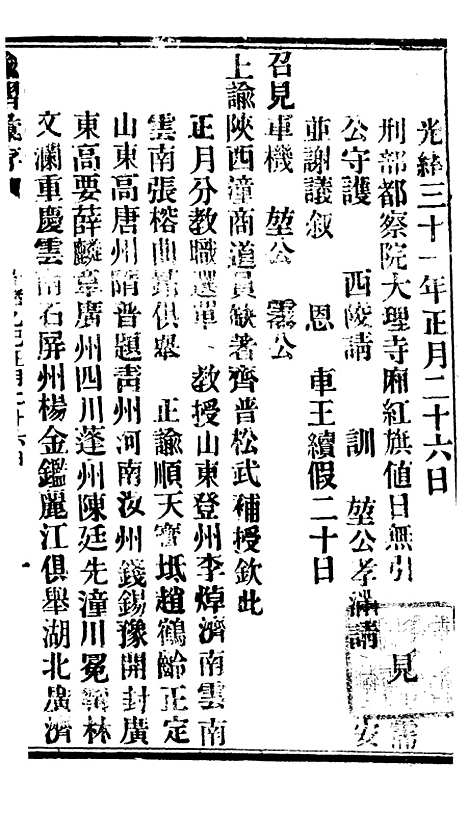 光緒三十一年正月二十六日
刑部都察院大理寺廂紅旗值日無引 見 
公守護 西陵請 訓 堃公孝 請 安
並謝議敘 恩 車王續假二十日
召見軍機 堃公 公
上諭陝西潼商道員缺著齊普松武補授欽此
正月分教職選單 教授山東登州李焯濟南雲南
雲南張榕曲 俱舉 正諭順天寶坻趙鶴齡正定
山東高唐州隋普題青州河南汝州錢錫豫開封廣
東高要薛麟 廣州四川蓬州陳廷先潼川冕 林
文瀾重慶雲南石屏州楊金鑑麗江俱舉湖北廣濟
諭摺彙存
正月二十六日